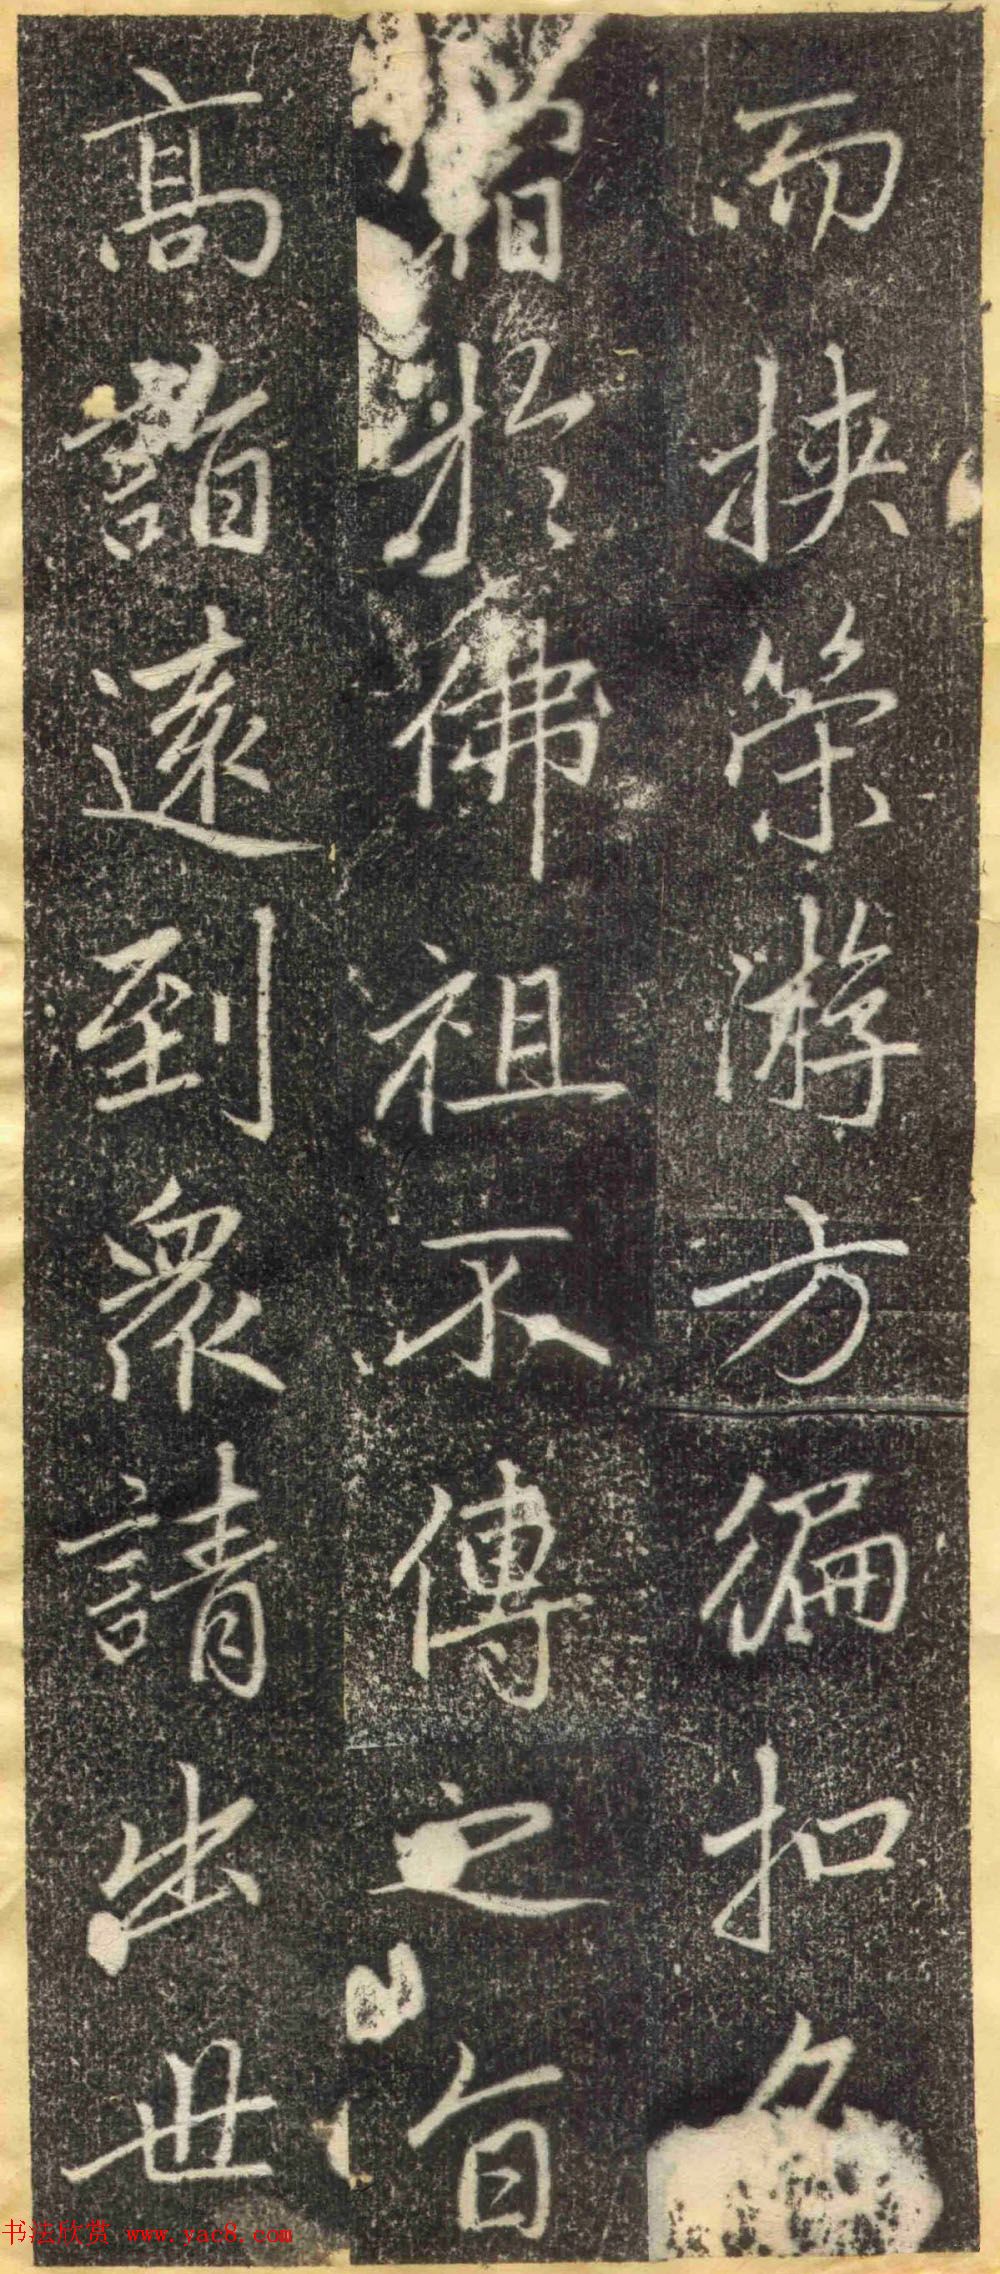 而挾策游方徧扣名
於佛祖不傳之旨
高詣遠到眾請出世
书法欣赏 www.yac8.com